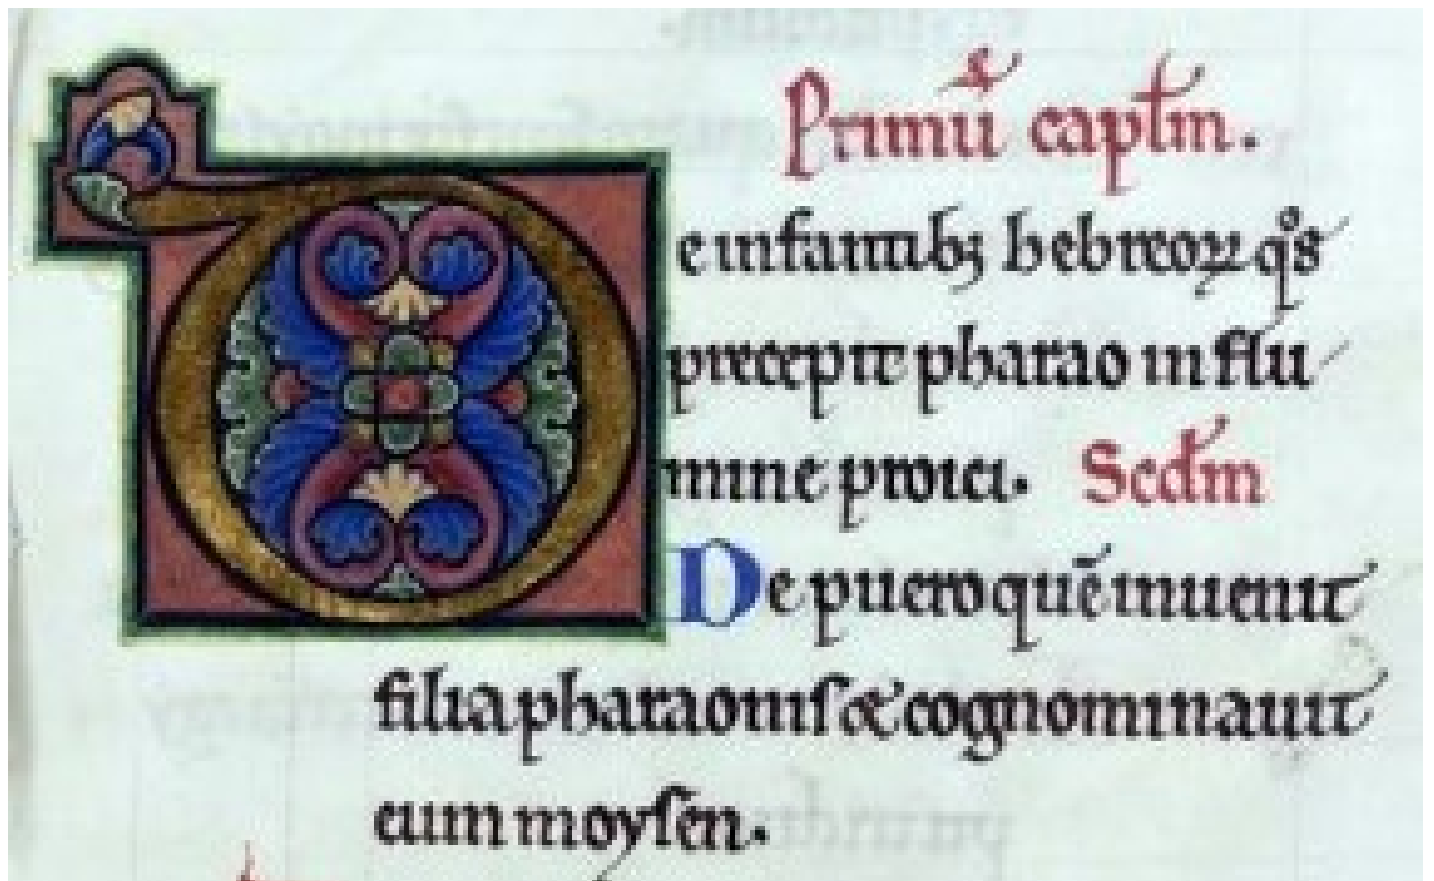 Primū captm.
De infantibꝫ hebreoꝝ qͦs
precepit pharao in flu
mine proici. Scdm
De puero quē inuenit
filia pharaoniſ & cognominauit
eum moyſen.